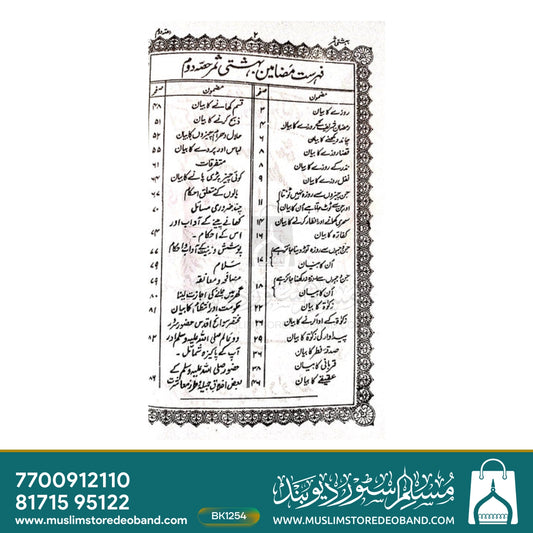 بہشتی ثمر
۲
حصہ دوم
فہرست مضامین بہشتی ثمر حصہ دوم
مضمون
صفحہ
روزے کا بیان ۳
رمضان شریف کے روزے کا بیان ۴
چاند دیکھنے کا بیان ۶
قضا روزے کا بیان ۸
نذر کے روزے کا بیان ۸
نفل روزے کا بیان ۹
جن چیزوں سے روزہ نہیں ٹوٹتا
اور جن سے ٹوٹ جاتا ہے اُن کا بیان ۱۱
سحری کھانے اور افطار کرنے کا بیان ۱۴
کفارہ کا بیان ۱۶
جن وجہوں سے روزہ توڑ دینا جائز ہے
اُن کا بیان ۱۷
جن وجہوں سے روزہ نہ رکھنا جائز ہے
اُن کا بیان ۱۸
زکوٰۃ کا بیان ۲۲
زکوٰۃ کے ادا کرنے کا بیان ۲۶
پیداوار کی زکوٰۃ کا بیان ۲۹
صدقہ فطر کا بیان
قربانی کا بیان ۳۸
عقیقے کا بیان ۴۶
مضمون
صفحہ
قسم کھانے کا بیان ۴۸
ذبح کرنے کا بیان ۵۱
حلال و حرام چیزوں کا بیان ۵۲
لباس اور پردے کا بیان ۵۵
متفرقات ۶۱
کوئی چیز پڑی پانے کا بیان
بالوں کے متعلق احکام ۶۷
چند ضروری مسائل ۷۰
کھانے پینے کے آداب اور
اس کے احکام۔ ۷۴
پوشش و زینت کے آداب و احکام ۷۷
سلام ۷۹
مصافحہ و معانقہ ۷۹
گھر میں جانے کی اجازت لینا ۸۰
حکومت اور انتظام کا بیان ۸۱
مختصر سوانح اقدس حضور سرور
دو عالم صلی اللہ علیہ وسلم اور
آپ کے پاکیزہ شمائل۔ ۸۳
حضور صلی اللہ علیہ وسلم کے
بعض اخلاق جمیلہ و طرز معاشرت
7700912110
81715 95122
www.muslimstoredeoband.com
BK1254
مسلم اسٹور دیوبند
WWW.MUSLIMSTOREDEOBAND.COM